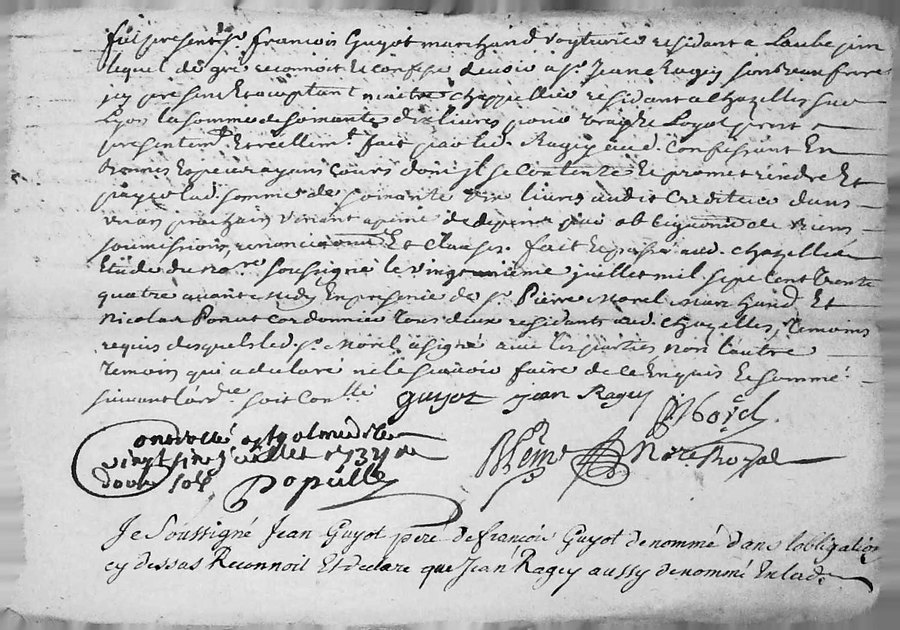 fut present sr. francois Guyot marchand voyturier residant a Laubepin
lequel de gré reconnoit et confesse devoir a sr. Jean Ragey son beau frere
icy present et acceptant maitre chappellier residant a chazelles sur
Lyon la somme de soixante dix livres pour vray et loyal prest a
presentemt. et réellemt. fait par led. Ragey aud. confessant en
bonnes espèces ayant cours dont il se contente et promet rendre et
payer lad. somme de soixante dix livres audit créditeur dans
un an prochain venant a peine de depens par obligation de biens
soumissions renonciations et clauses. fait et passé aud. chazelles
Etude du nore. soussigné le vingt juillet mil sept cent trente
quatre avant midy en présence de sr. Pierre Morel marchand et
Nicolas cordonnier tous deux residants aud. chazelles, temoins
requis desquels led. sr. Morel a signé avec les parties non l'autre
temoin qui a declaré ne le sçavoir faire de ce enquis et sommé.
suivant l'ordce soit contlé guyot jean Ragey
Morel.
Controllé a st galmier le
vingt cinq juillet 1734 R
douze sols Populle
Nore Royal
Je soussigné Jean Guyot père de francois Guyot denommé dans l'obligation
cy dessus Reconnoit Et declare que Jean Ragey aussy denommé En lad.